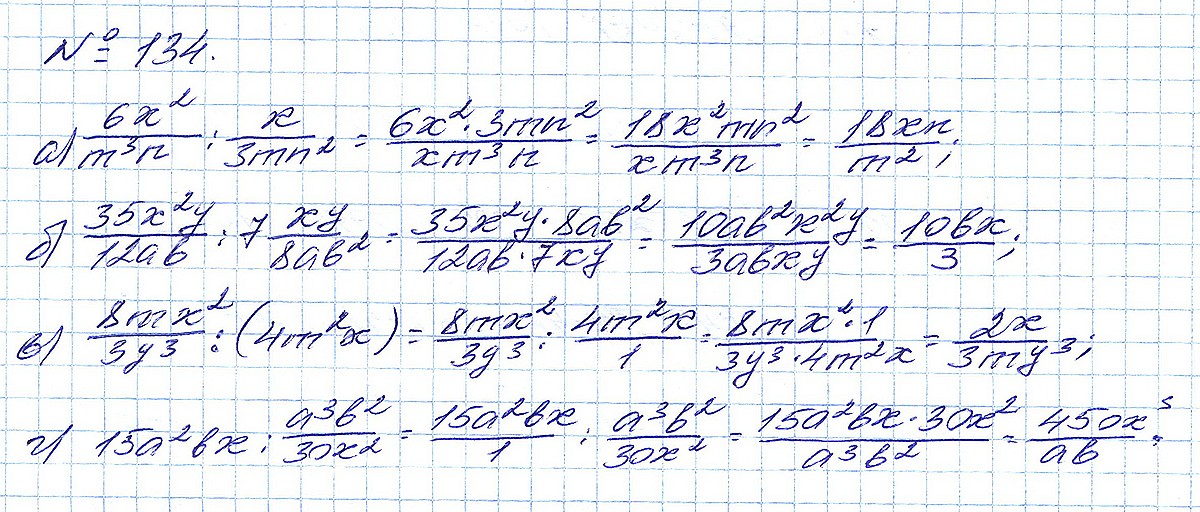 № 134.
а) 6x²/m³n : x/3mn² = 6x²·3mn²/xm³n = 18x²mn²/xm³n = 18xn/m²;
б) 35x²y/12ab : 7 xy/8ab² = 35x²y·8ab²/12ab·7xy = 10ab²x²y/3abxy = 10bx/3;
в) 8mx²/3y³ : (4m²x) = 8mx²/3y³ : 4m²x/1 = 8mx²·1/3y³·4m²x = 2x/3my³;
г) 15a²bx : a³b²/30x² = 15a²bx/1 : a³b²/30x² = 15a²bx·30x²/a³b² = 450x³/ab.